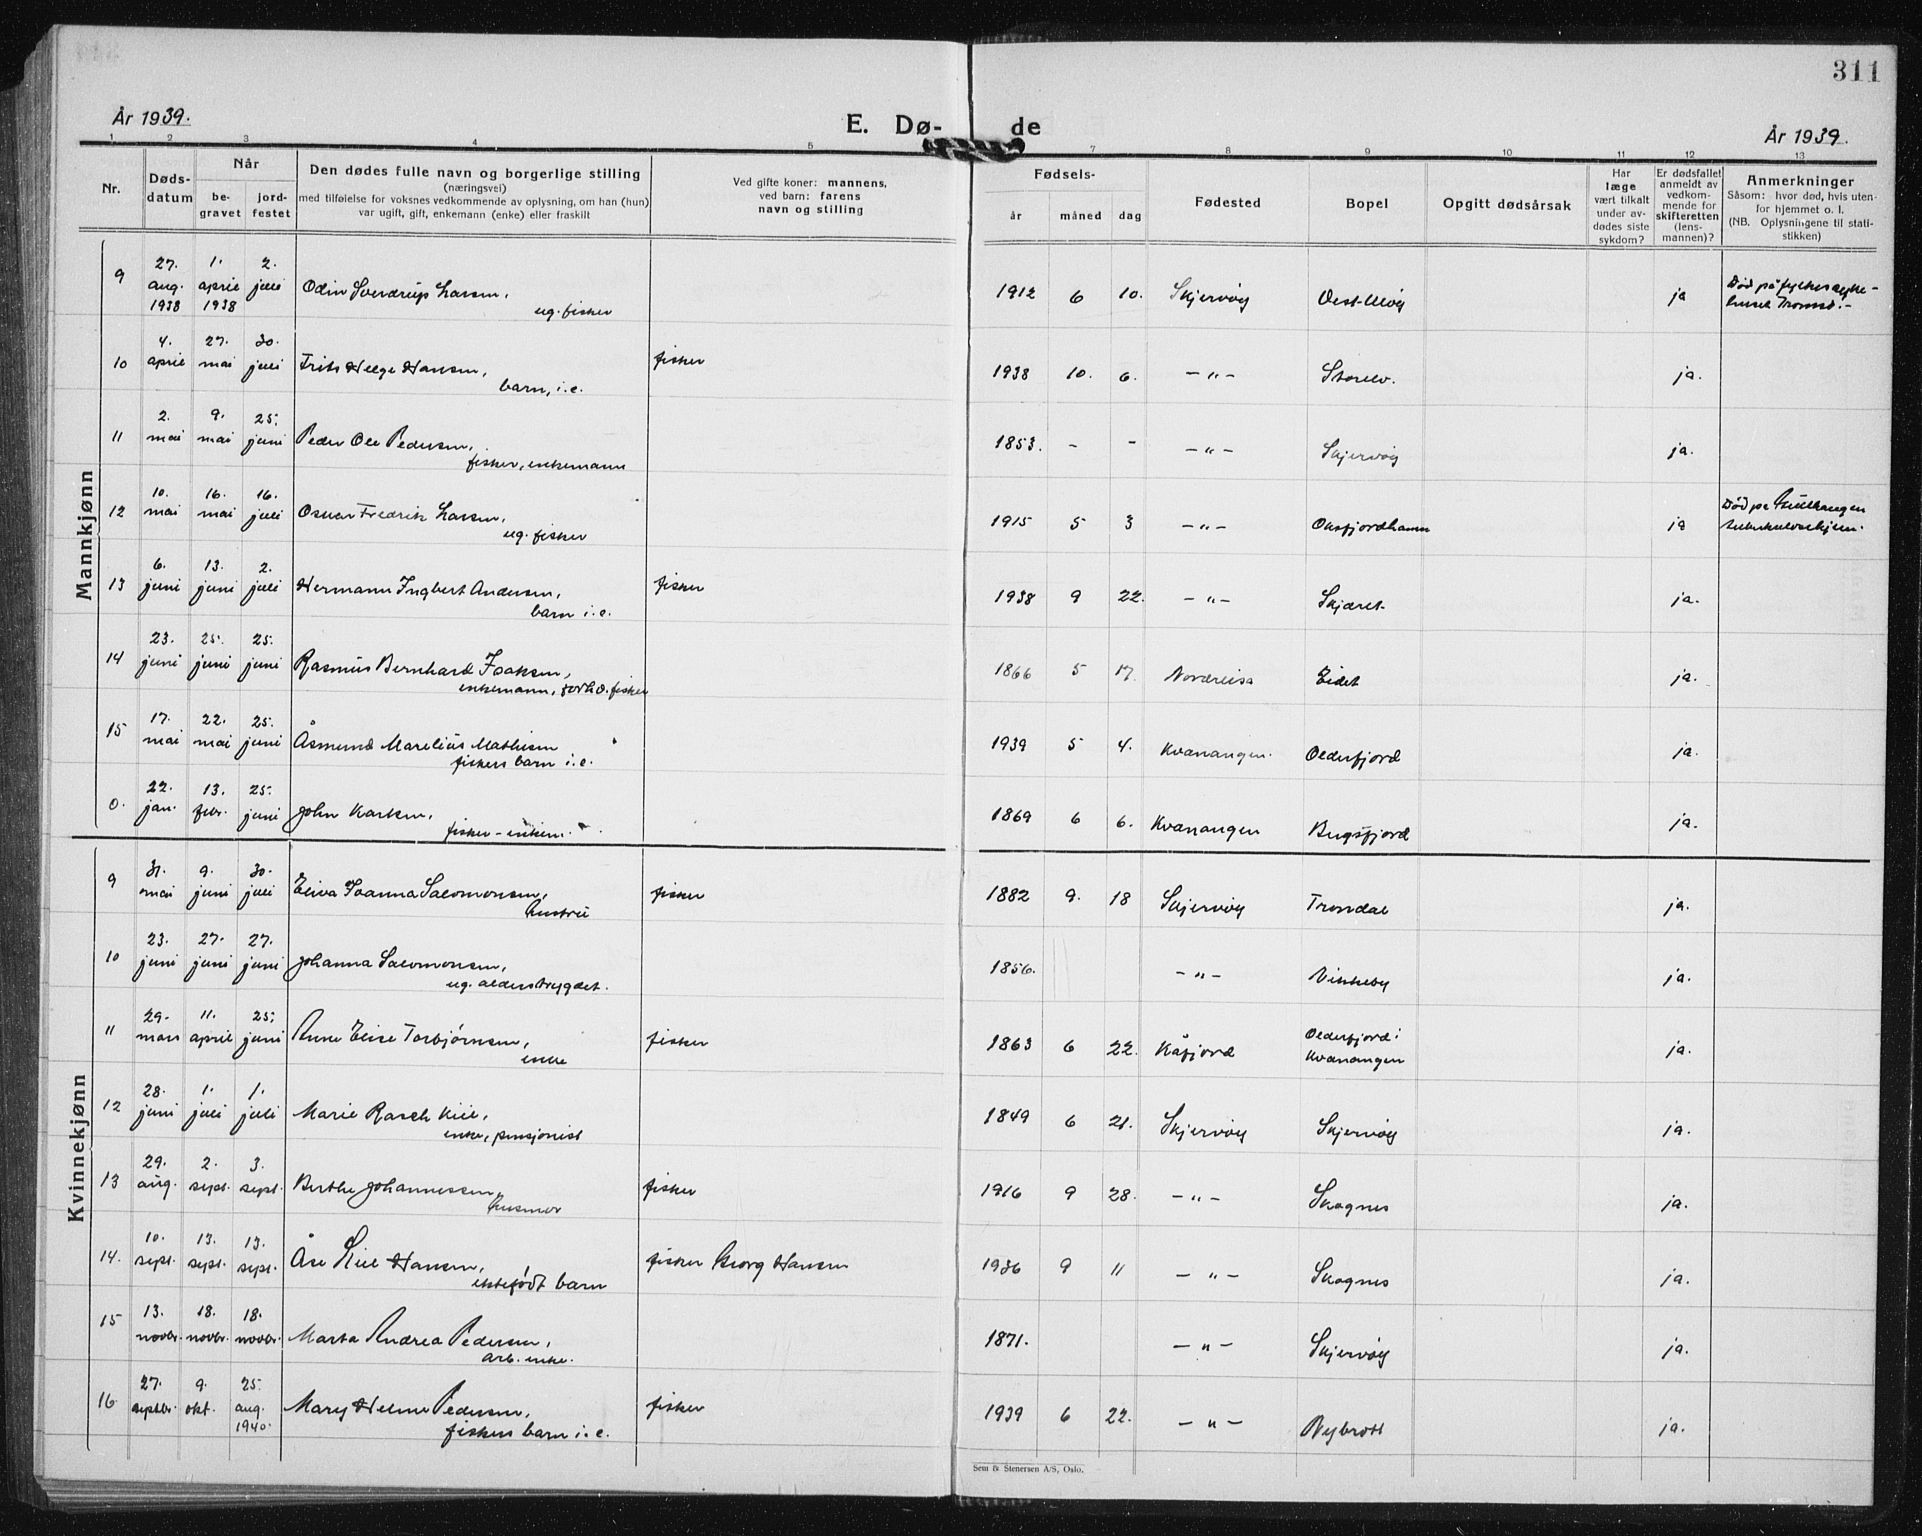 311
År 1939.
E. Dø-
de
År 1939.
1 2 3 4 5 7 8 9 10 11 12 13
Nr.
Døds-
datum
Når
be-
gravet
jord-
festet
Den dødes fulle navn og borgerlige stilling
(næringsvei)
med tilføielse for voksnes vedkommende av oplysning, om han (hun)
var ugift, gift, enkemann (enke) eller fraskilt
Ved gifte koner: mannens,
ved barn: farens
navn og stilling
Fødsels-
år måned dag
Fødested
Bopel
Opgitt dødsårsak
Har
læge
vært tilkalt
under av-
dødes siste
sykdom?
Er dødsfallet
anmeldt av
vedkom-
mende for
skifteretten
(lens-
mannen)?
Anmerkninger
Såsom: hvor død, hvis uten-
for hjemmet o. l.
(NB. Oplysningene til stati-
stikken)
Mannkjønn
9 27. aug. 1938 1. april 1938 2. juli Odin Sverdrup Larsen, ug. fisker 1912 6 10. Skjervøy ja Død på fylkessyke-
huset Tromsø.-
10 4. april 27. mai 30. juli Frits Helge Hansen, barn, i.e. fisker 1938 10. 6. -"- Storelv. ja.
11 2. mai 9. mai 25. juni Peder Ole Pedersen, fisker, enkemann 1853. - - -"- Skjervøy ja.
12 10. mai 16. mai 16. juli Oskar Fredrik Larsen, ug. fisker 1915 5 3 -"- Oksfjordhamn ja Død på
tuberkulosehjem.
13 6. juni 13. juni 2. juli Hermann Ingbert Andersen, barn i.e. fisker 1938 9 22. -"- Skjæret ja.
14 23. juni 25. juni 25. juni Rasmus Bernhard Isaksen, enkemann, forh.v. fisker 1866 5 17. Nordreisa Eidet ja.
15 17. mai 22. mai 25. juni Åsmund Marelius Mathisen fiskers barn i.e. 1939 5 4. Kvænangen. Olderfjord ja.
0. 22. jan. 13. febr. 25. juni John Karlsen, fisker - enkem. 1869 6 6. Kvænangen Burgsfjord ja.
Kvinnekjønn
9 31. mai 9. juni 30. juli Eliva Joanna Salomonsen, hustru fisker 1882 9. 18 Skjervøy Trondal ja.
10 23. juni 27. juni 27. juni Johanna Salomonsen, ug. alderstrygdet. 1856. -"- Vinkeby ja.
11 29. mars 11. april 25. juni Anne Elise Torbjørnsen, enke fisker 1863 6 22. Kåfjord Olderfjord i
Kvænangen ja.
12 28. juni 1. juli 1. juli Marie Rasch Kiil, enke, pensjonist 1849 6 21. Skjervøy Skjervøy ja.
13 29. aug. 2. sept. 3. sept. Berthe Johannessen, husmor fisker 1916 9 28. -"- Skognes ja.
14. 10. sept. 13. sept. 13. sept. Åse Kiil Hansen, ektefødt barn fisker Georg Hansen 1936 9 11 -"- Skognes ja.
15 13. novbr. 18. novbr. 18. novbr. Marta Andrea Pedersen, arb. enke. 1871. -"- Skjervøy ja.
16 27. septbr. 9. okt. 25. aug. 1940. Mary Helene Pedersen, fiskers barn i.e. fisker 1939 6 22. -"- Nybrott ja.
Sem & Stenersen A/S, Oslo.